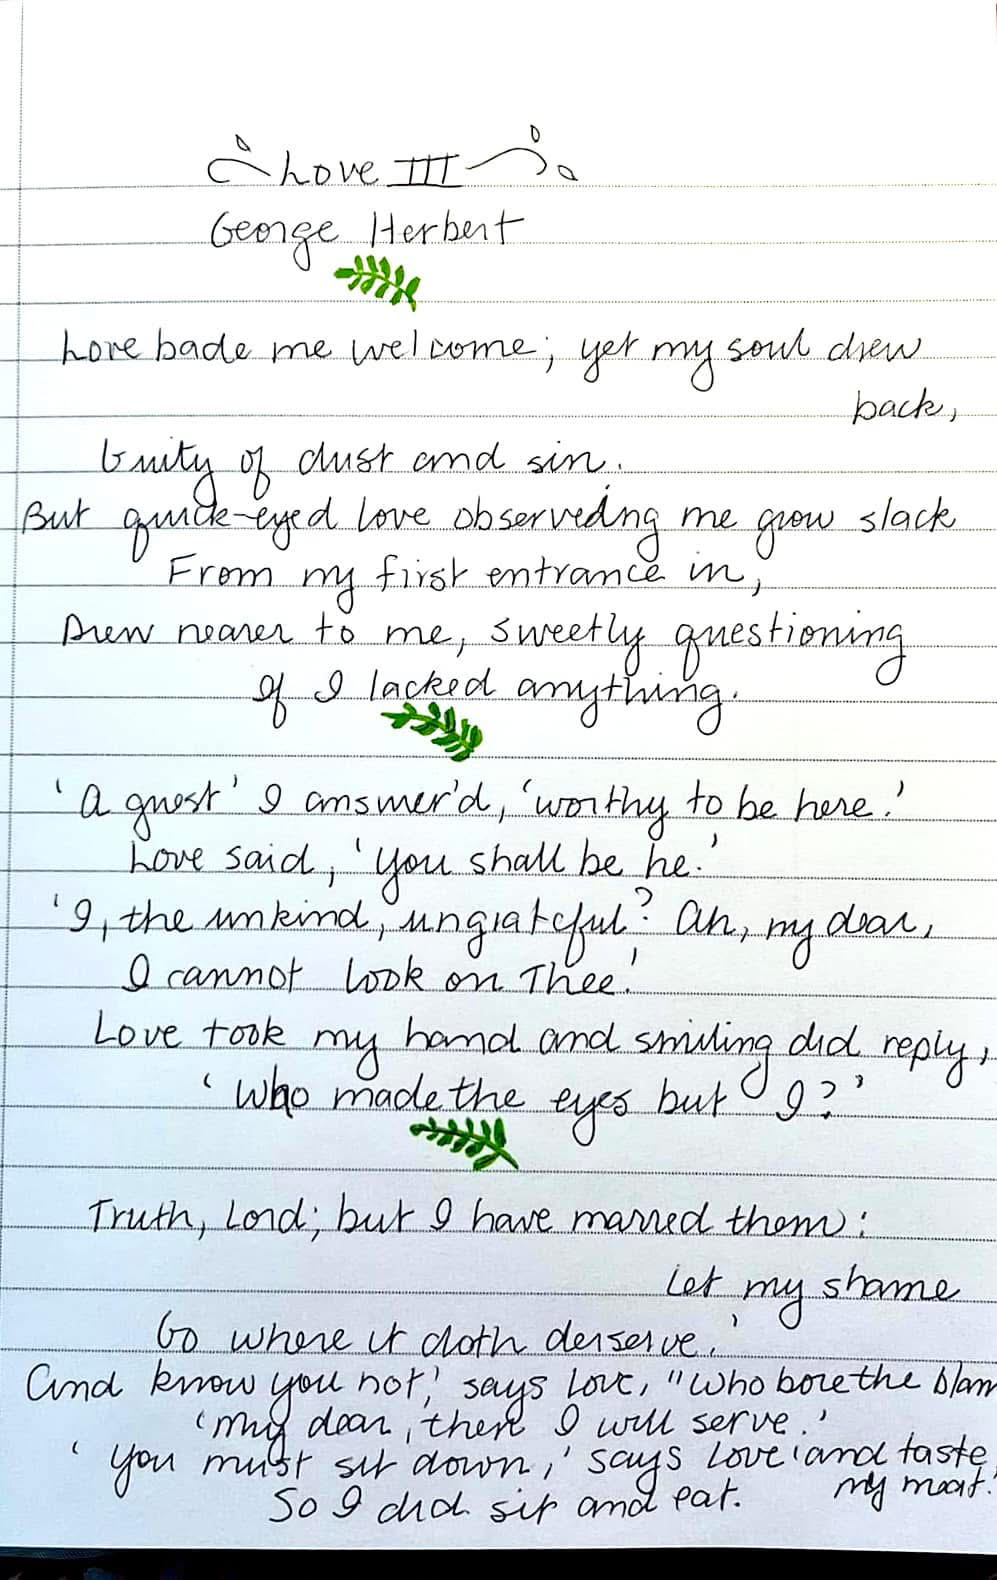 Love III
George Herbert
Love bade me welcome; yet my soul drew
back,
Guity of dust and sin.
But quick-eyed love observedng me grow slack
From my first entrance in,
Drew nearer to me, sweetly questioning
If I lacked anything.
'A guest' I answer'd, 'worthy to be here.'
Love said, 'you shall be he.'
'I, the unkind, ungrateful? Ah, my dear,
I cannot look on Thee.'
Love took my hand and smiling did reply,
'Who made the eyes but I?'
Truth, Lord; but I have marred them:
Let my shame
Go where it doth derserve.'
And know you not,' says Love, "who bore the blam
'my dear, then I will serve.'
'You must sit down,' says Love 'and taste
my meat.'
So I did sit and eat.